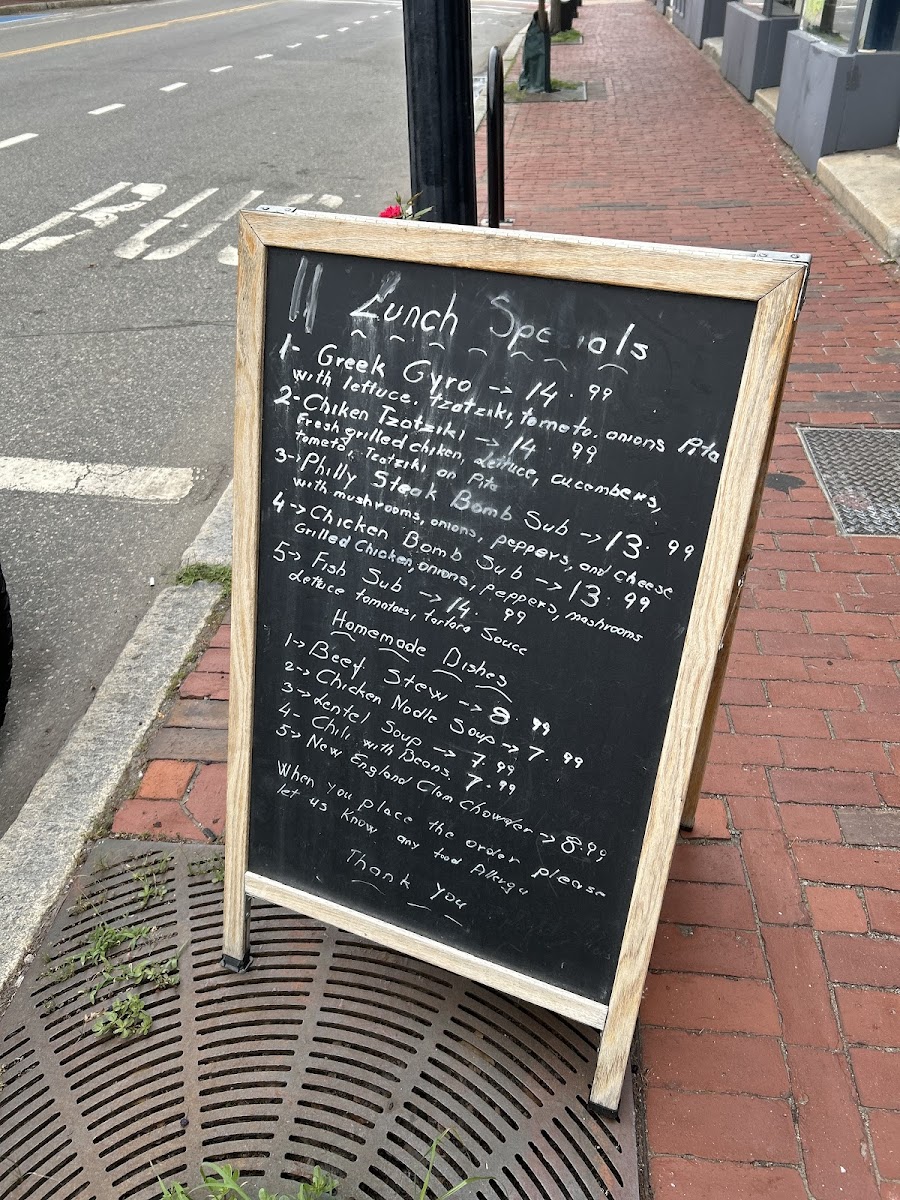 BUS
Lunch Specials
1- Greek Gyro -> 14.99
with lettuce. tzatziki, tomato. onions Pita
2- Chiken Tzatziki -> 14.99
Fresh grilled chiken, Lettuce, cucembers,
tomato, Tzatziki on Pita
3-> Philly Steak Bomb Sub -> 13.99
with mushrooms, onions, peppers, and cheese
4-> Chicken Bomb Sub -> 13.99
Grilled Chicken, onions, peppers, mashrooms
5-> Fish Sub -> 14.99
Lettuce tomatoes, tartara Sauce
Homemade Dishes
1-> Beef Stew -> 8.99
2-> Chicken Nodle Soup -> 7.99
3-> Lentel Soup -> 7.99
4- Chili with Beans 7.99
5-> New England Clam Chowder -> 8.99
When you place the order please
let us know any food Allergy
Thank you